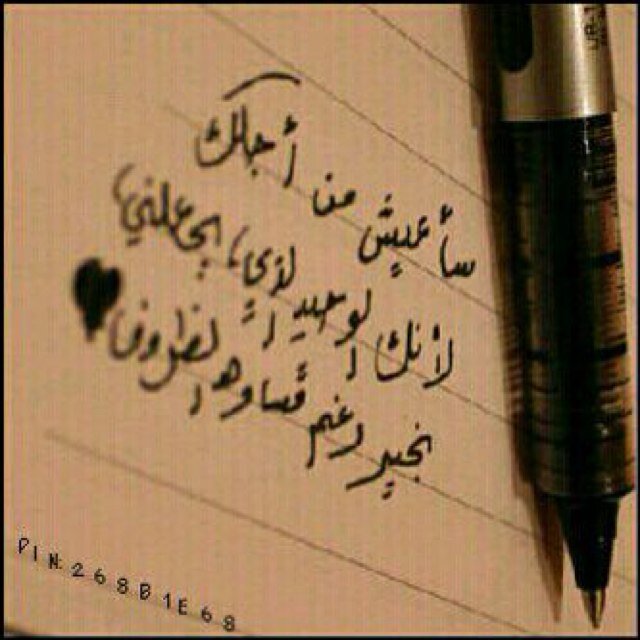 سأعيش من أجلك
لأنك الوحيد الذي يجعلني
بخير رغم قساوة الظروف
PIN:268B1E68